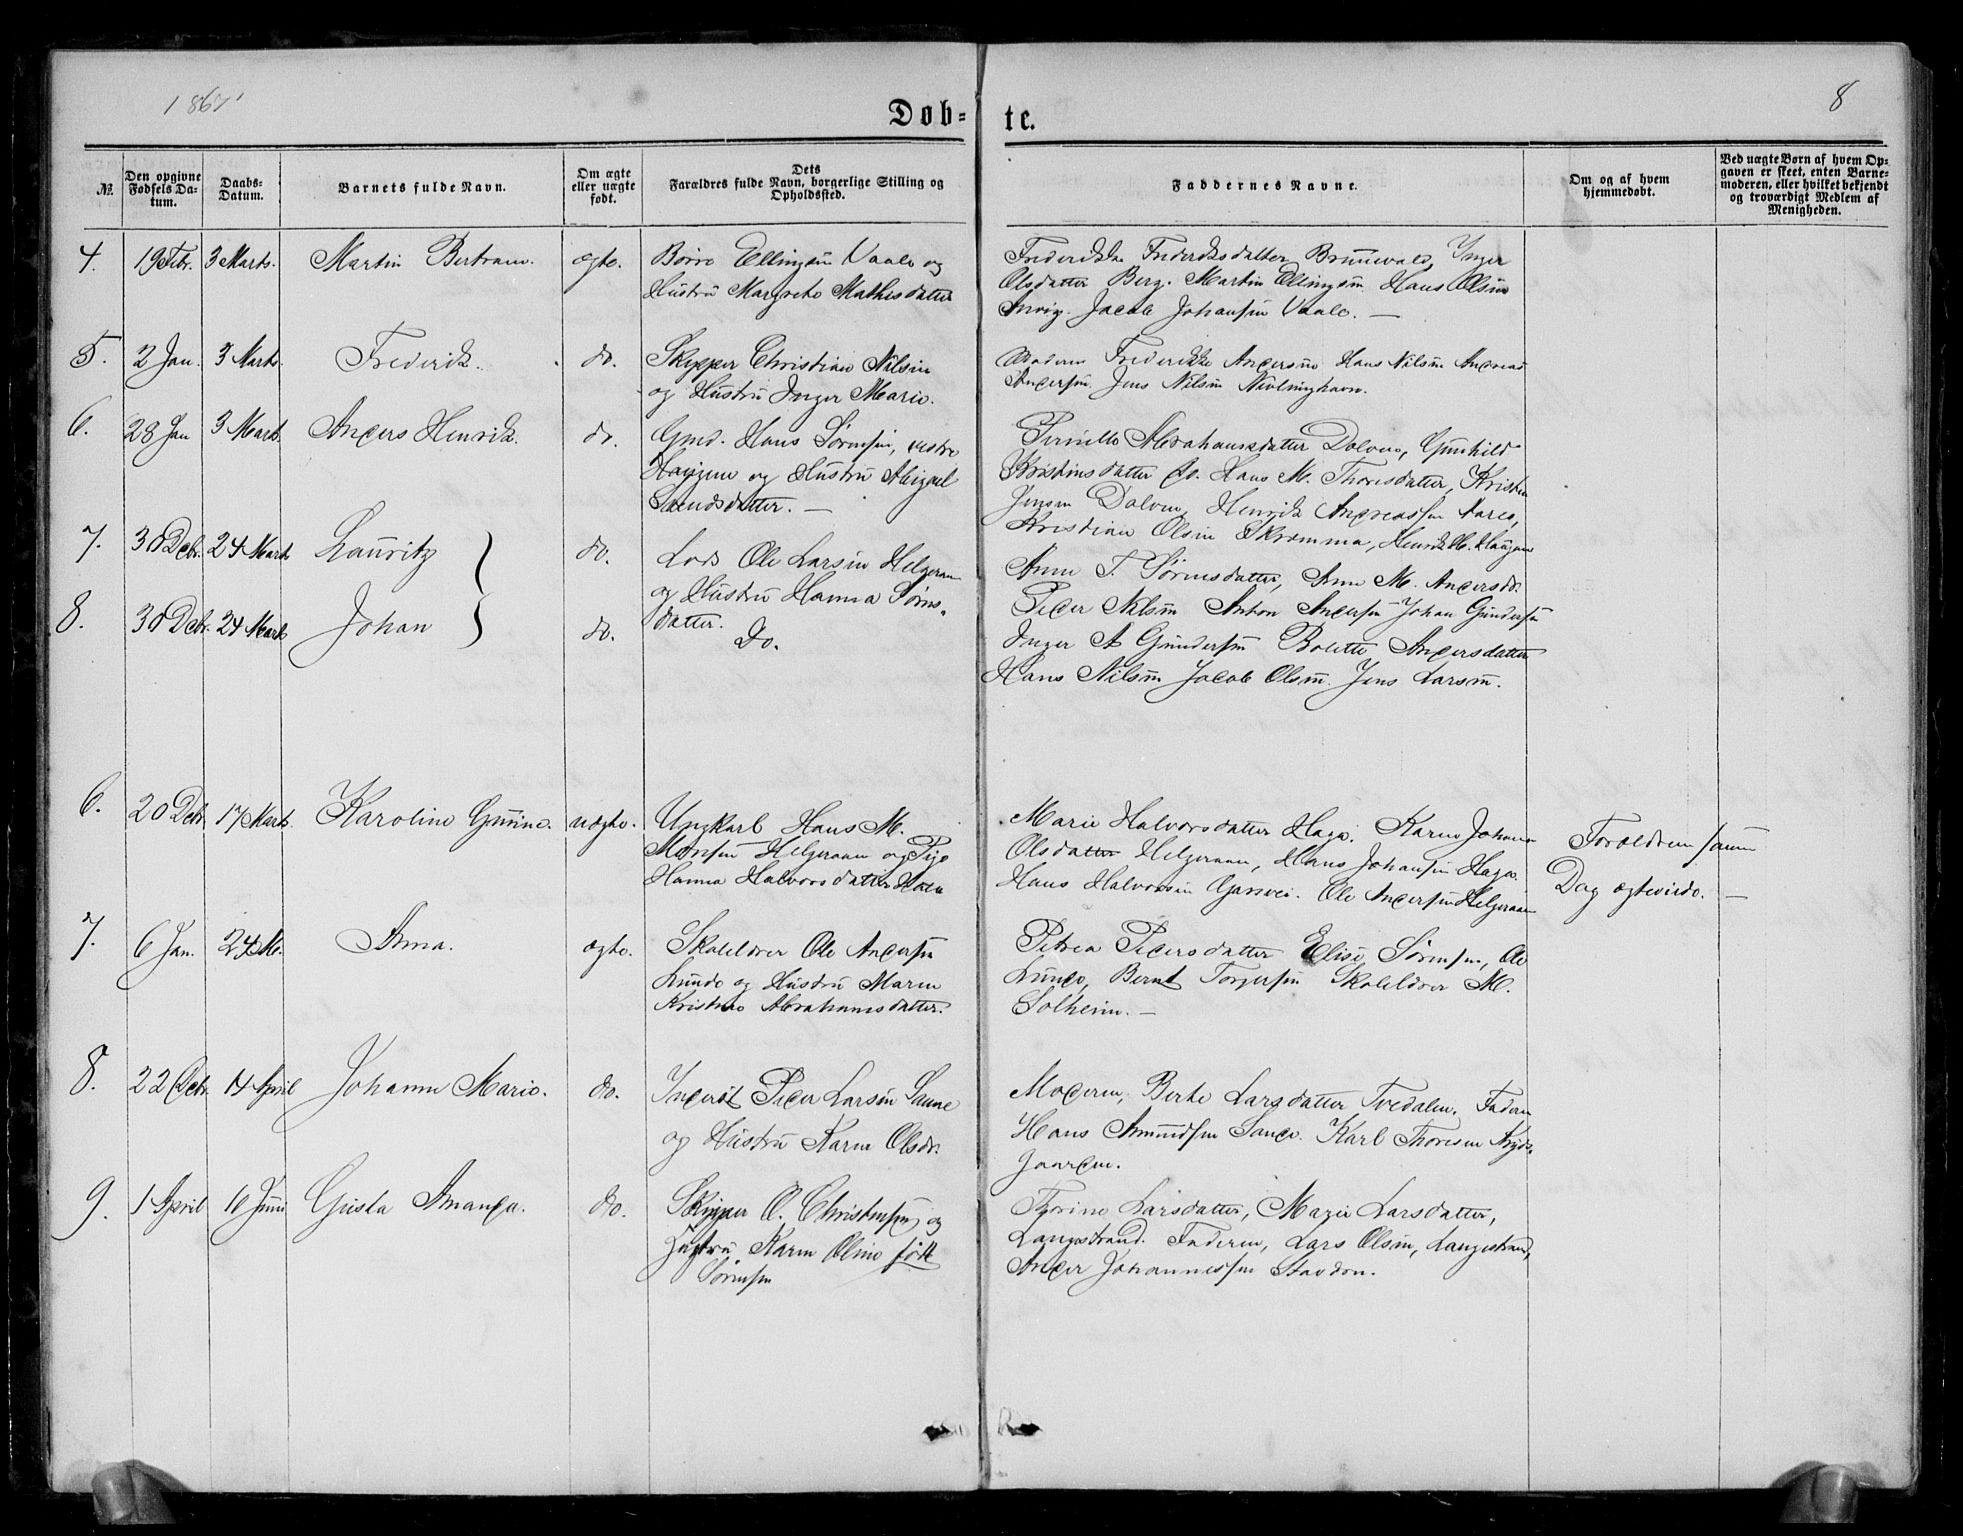 1867
8
Døb-
te.
№
Den opgivne Fødsels Da-tum.
Daabs-Datum.
Barnets fulde Navn.
Om ægte eller uægte født.
Dets Forældres fulde Navn, borgerlige Stilling og Opholdssted.
Faddernes Navne.
Om og af hvem hjemmedøbt.
Ved uægte Børn af hvem Op-gaven er skeet, enten Barne-moderen, eller hvilket bekjendt og troværdigt Medlem af Menigheden.
4. 19 Febr. 3 Marts. Martin Bertram. ægte.
Børre Ellingsen Vaale og
Hustru Margrete Mathisdatter
Frederikke Frederiksdatter Brunvald, Inger
Olsdatter Berg. Martin Ellingsen Hans Olsen
Jacob Johansen Vaale. —
5. 2 Jan. 3 Marts Frederik. do.
Skipper Christian Nilsen
og Hustru Inger Marie.
Moderen Frederikke Andersen Hans Nilsen Andreas
Andersen. Jens Nilsen Nevlunghavn.
6. 28 Jan 3 Marts Anders Henrik. do.
Gmd. Hans Sørensen, østre
Haugene og Hustru Abigael
datter. —
Pernille Abrahamsdatter Dolven, Gunhild
Kristensdatter do. Hans M. Thorisdatter, Kristen
Jensen Dolven, Henrik Andreassen
Kristian Olsen Skramma, Henrik H. Haugene
7. 30 Debr. 24 Marts Lauritz do.
Lods Ole Larsen Helgeraan
og Hustru Hanna Søréns-
datter.
Anne T. Sørensdatter, Anne M. Andersdr.
Peder Nilsen Anton Andersen Johan Gundersen
8. 30 Debr. 24 Marts Johan do.
Do.
Inger A Gundersen Bolette Andersdatter
Hans Nilsen Jacob Olsen. Jens Larsen.
6. 20 Debr. 17 Marts. Karoline Gurine. uægte.
Ungkarl Hans M.
Helgeraan og Pige
Hanna Halvorsdatter
Marie Halvorsdatter Haga. Karen Johanne
Olsdatter Helgeraan, Hans Johansen Haga.
Hans Halvorsen. Ole Andersen Helgeraan
Forældrene samme
Dag ægteviede. —
7. 6 Jan. 24 M. Anna. ægte.
Skolelærer Ole Andersen
Lunde og Hustru Maren
Kristine Abrahamsdatter.
Petrea Pedersdatter Elise Sørensen, Ole
Lunde, Bernt Torgersen Skolelærer M.
Solheim. —
8. 22 Debr. 14 April Johanne Marie. do.
Inderst Peder Larsen Sande
og Hustru Karen Olsdr.
Moderen, Berte Larsdatter Tvedalen. Faderen
Hans Amundsen Sande. Karl Thoresen
gaarden.
9. 1 April 10 Juni Gusta Amanda. do.
Skipper O. Christensen, og
Hustru Karen Oline født
Sørensen
Thorine Larsdatter, Mazie Larsdatter,
Langestrand. Faderen, Lars Olsen, Langestrand,
Ander Johannessen Stavdon.